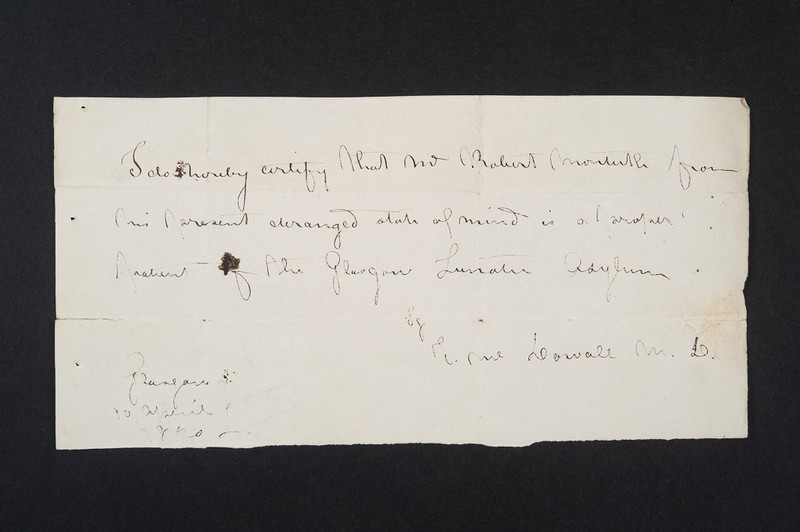 I do hereby certify that Mr Robert Monteith from
his present deranged state of mind is a proper
patient of the Glasgow Lunatic Asylum
Sg
Mc Dowall M. D.
Glasgow
10 April